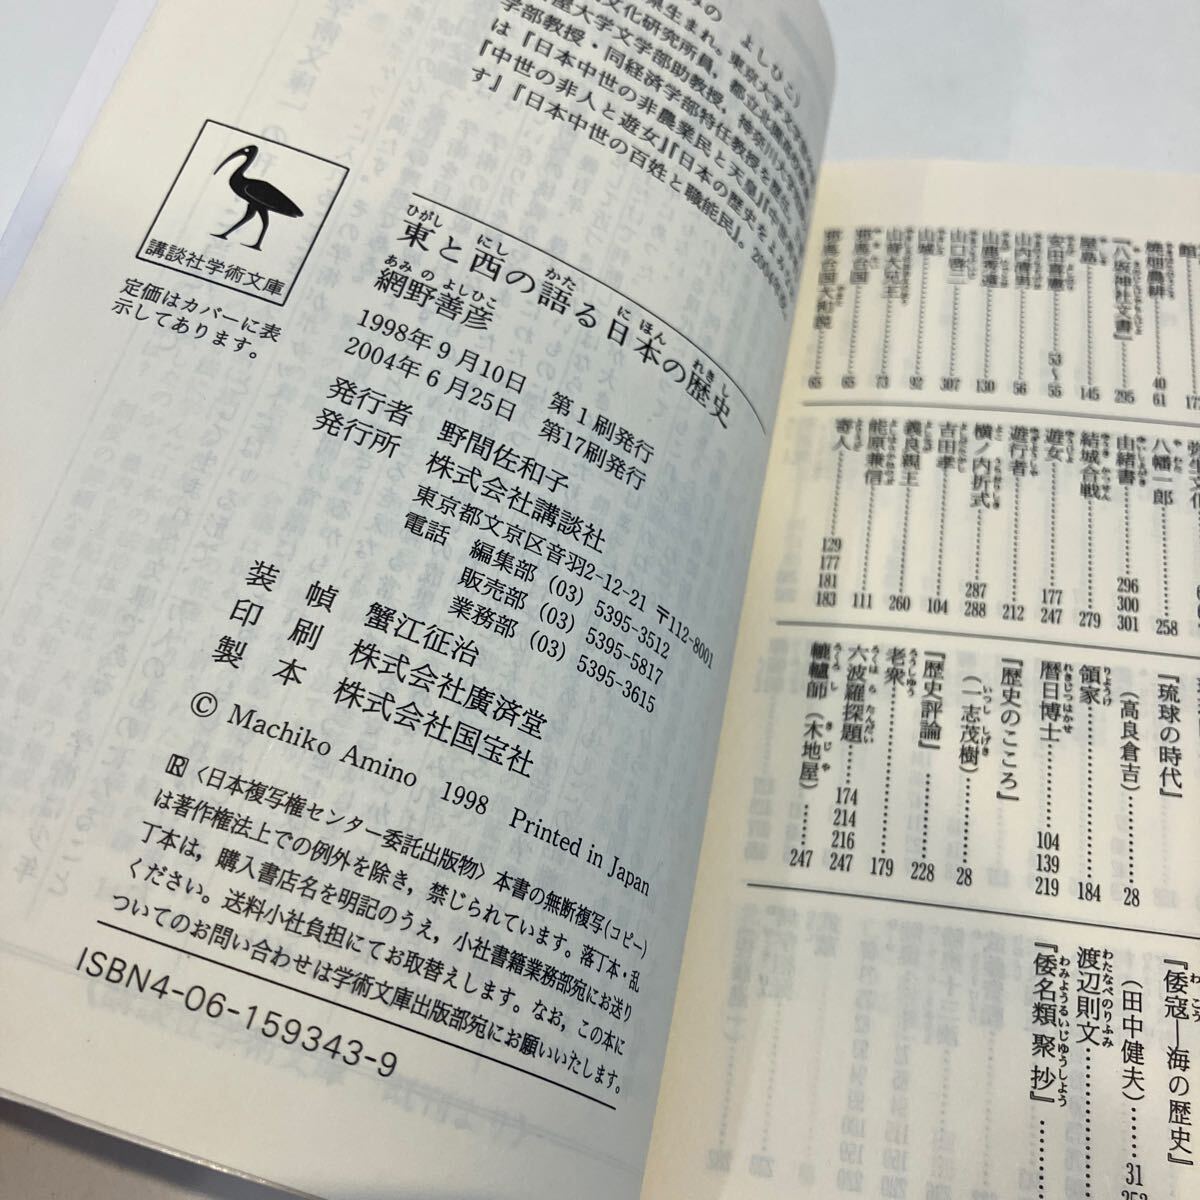 よしひこ)
生まれ。東京大学文学
文化研究所員,都立北園高
屋大学文学部助教授,神奈川大
学部教授・同経済学部特任教授を歴
は『日本中世の非農業民と天皇』『
『中世の非人と遊女』『日本の歴史をよみ
す』『日本中世の百姓と職能民』。2004年
講談社学術文庫
定価はカバーに表
示してあります。
ひがし にし かた にほん れきし
東と西の語る日本の歴史
あみの よしひこ
網野善彦
1998年9月10日 第1刷発行
2004年6月25日 第17刷発行
発行者 野間佐和子
発行所 株式会社講談社
東京都文京区音羽2-12-21 〒112-8001
電話 編集部 (03) 5395-3512
販売部 (03) 5395-5817
業務部 (03) 5395-3615
装 幀 蟹江征治
印 刷 株式会社廣済堂
製 本 株式会社国宝社
© Machiko Amino 1998 Printed in Japan
R〈日本複写権センター委託出版物〉本書の無断複写(コピー)
は著作権法上での例外を除き,禁じられています。落丁本・乱
丁本は,購入書店名を明記のうえ,小社書籍業務部宛にお送り
ください。送料小社負担にてお取替えします。なお,この本に
ついてのお問い合わせは学術文庫出版部宛にお願いいたします。
ISBN4-06-159343-9
館
焼畑農耕……40 61
『八坂神社文書』……295
屋島……145
安田喜憲……53〜55
山内清男……56
山鹿秀遠……130
山口啓二……307
山城……92
山背大兄王……73
邪馬台国……65
邪馬台国大和説……65
弥生文化
八幡一郎……258
由緒書……296 300 301
結城合戦……279
遊女……177 247
遊行者……212
横ノ内折式……287 288
吉田孝……104
義良親王……260
能原兼信……111
寄人……129 177 181 183
『琉球の時代』
(高良倉吉)……28
領家……184
暦日博士……104 139 219
『歴史のこころ』
(一志茂樹)……28
『歴史評論』……228
老衆……179
六波羅探題……174 214 216 247
轆轤師(木地屋)……247
『倭寇―海の歴史』
(田中健夫)……31
渡辺則文
『倭名類聚抄』